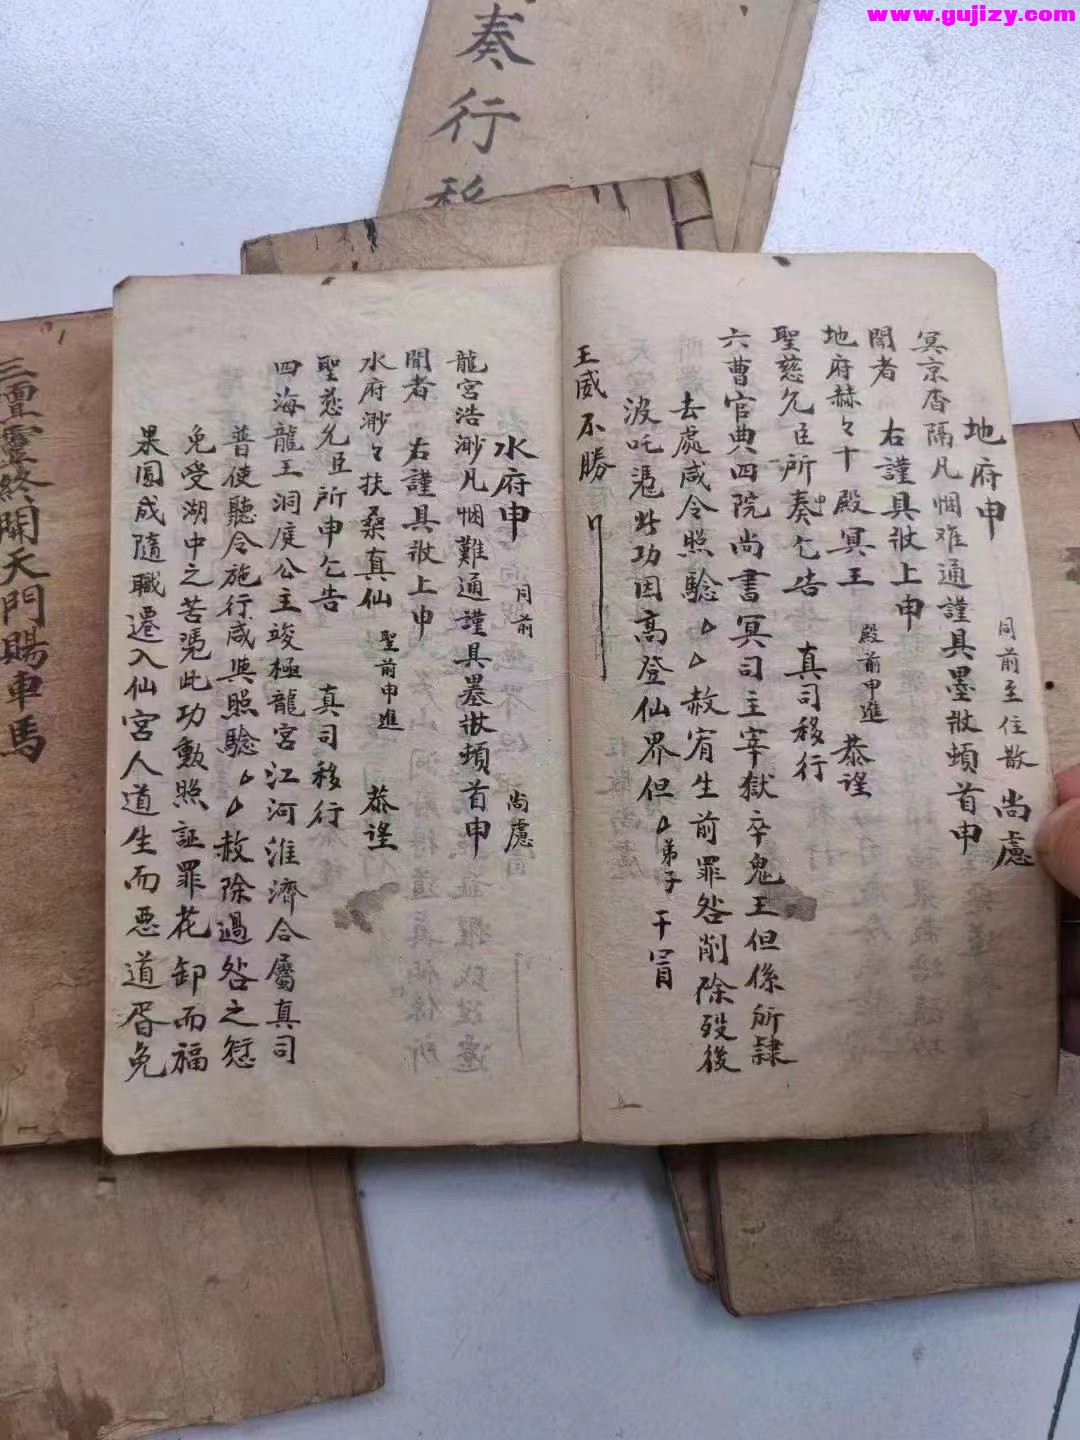 www.gujizy.com
奏行移
地府申 同前至住散 尚處
冥京杳隔凡悃难通謹具墨狀頓首申
聞者 右謹具狀上申
地府赫々十殿冥王 殿前申進 恭望
聖慈允臣所奏乞告 真司移行
申
六曹官典四院尚書冥司主宰獄卒鬼王但係所隸
去處咸令照驗ムム赦宥生前罪咎削除殁後
波吒憑此功因高登仙界但ム弟子干冒
王威不勝
水府申 同前 尚處
龍宮浩渺凡悃難通謹具墨狀頓首申
聞者 右謹具狀上申
水府渺々扶桑真仙 聖前申進 恭望
聖慈允臣所申乞告 真司移行
四海龍王洞庭公主竣極龍宮江河淮濟合屬真司
普使聽令施行咸與照驗ムム赦除過咎之愆
免受湖中之苦憑此功勳照証罪花卸而福
果圓成隨職遷入仙宮人道生而惡道脣免
三靈終開天門賜車馬